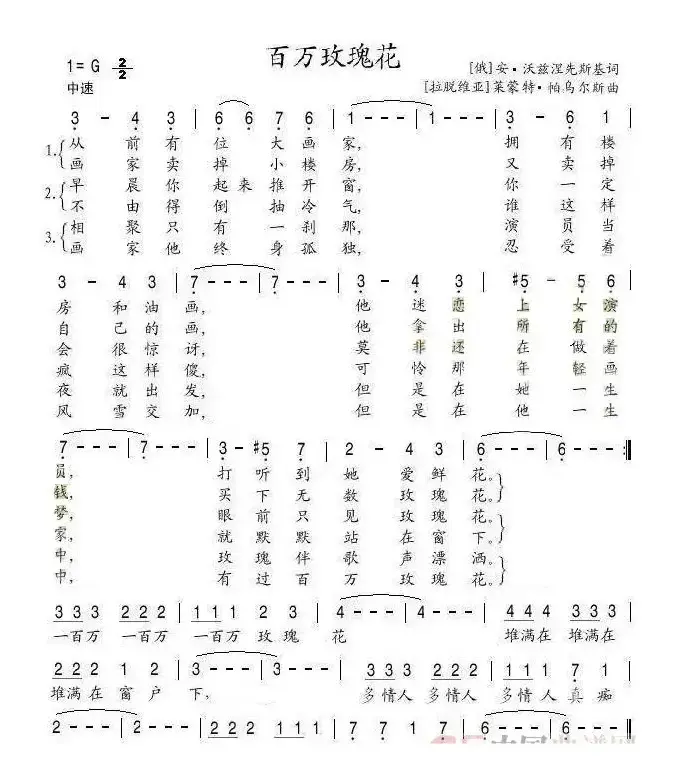 百万玫瑰花
1=G 2/2
[俄]安·沃兹涅先斯基词
中速
[拉脱维亚]莱蒙特·帕乌尔斯曲
3 - 4 3 | 6 6 7 6 | 1 - - - | 1 - - - | 3 - 6 1 |
1. 从 前 有 位 大 画 家, 拥 有 楼
画 家 卖 掉 小 楼 房, 又 卖 掉
2. 早 晨 你 起 来 推 开 窗, 你 一 定
不 由 得 倒 抽 冷 气, 谁 这 样
3. 相 聚 只 有 一 刹 那, 演 员 当
画 家 他 终 身 孤 独, 忍 受 着
3 - 4 3 | 7 - - - | 7 - - - | 3 - 4 3 | #5 - 5 6 |
房 和 油 画, 他 迷 恋 上 女 演
自 己 的 画, 他 拿 出 所 有 的
会 很 惊 讶, 莫 非 还 在 做 着
疯 这 样 傻, 可 怜 那 年 轻 画
夜 就 出 发, 但 是 在 她 一 生
风 雪 交 加, 但 是 在 他 一 生
7 - - - | 7 - - - | 3 - #5 7 | 2 - 4 3 | 6 - - - | 6 - - - :||
员, 打 听 到 她 爱 鲜 花。
钱, 买 下 无 数 玫 瑰 花。
梦, 眼 前 只 见 玫 瑰 花。
家, 就 默 默 站 在 窗 下。
中, 玫 瑰 伴 歌 声 漂 洒。
中, 有 过 百 万 玫 瑰 花。
333 222 | 111 7 1 | 4 - - - | 4 - - - | 444 333 |
一百万 一百万 一百万 玫 瑰 花 堆满在 堆满在
222 1 2 | 3 - - - | 3 - - - | 333 222 | 111 7 1 |
堆满在 窗 户 下, 多情人 多情人 多情人 真 痴
2 - - - | 2 - - - | 222 111 | 7 1 7 | 6 - - - | 6 - - - ||